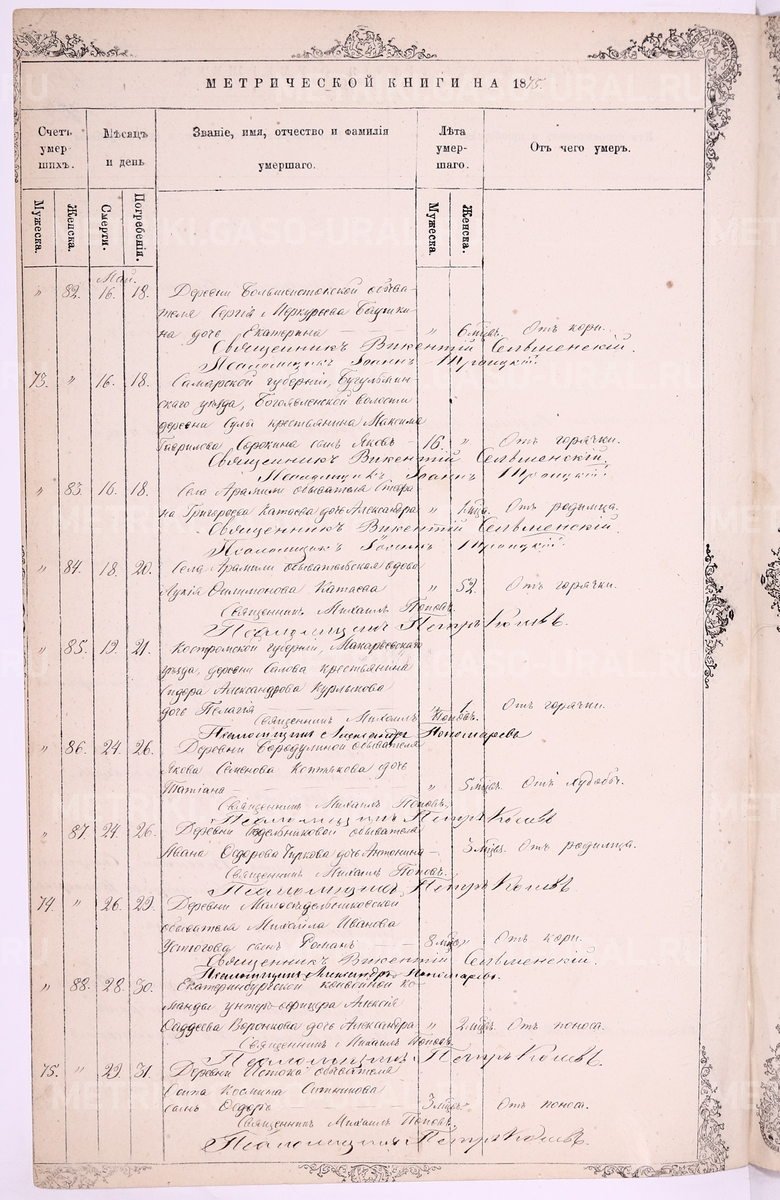 МЕТРИЧЕСКОЙ КНИГИ НА 1875.
Счетъ умер- шихъ.
Мѣсяцъ и день
Званіе, имя, отчество и фамилія умершаго.
Лѣта умер- шаго.
Отъ чего умеръ.
Мужеска. Женска. Смерти. Погребенія. Мужеска. Женска.
Май.
" 82. 16. 18. Деревни Большеистокской обыва-
теля Сергія Меркурьева
на дочь Екатерина " 6 мѣсц. Отъ кори.
Священникъ Викентій Сельменскій.
Псаломщикъ Іоаннъ Троицкій.
73. " 16. 18. Самарской губерніи, Бугульмин-
скаго уѣзда, Богоявленской волости
деревни крестьянина Максима
Гаврилова Сорокина сынъ Яковъ 16. " Отъ горячки.
Священникъ Викентій Сельменскій.
Псаломщикъ Іоаннъ Троицкій.
" 83. 16. 18. Села Арамили обывателя
на Григорьева Катаева дочь Александра " Отъ родимца.
Священникъ Викентій Сельменскій.
Псаломщикъ Іоаннъ Троицкій.
" 84. 18. 20. Села Арамили обывательская вдова
Филимонова Катаева " 52. Отъ горячки.
Священникъ Михаилъ Поповъ.
Псаломщикъ Петръ
" 85. 19. 21. Костромской губерніи, Макарьевскаго
уѣзда, деревни крестьянина
Сидора Александрова
дочь Пелагія " 1. Отъ горячки.
Священникъ Михаилъ Поповъ.
Псаломщикъ Александръ Пономаревъ
" 86. 24. 26. Деревни Бородулиной обывателя
Якова Семенова дочь
Татіана " 5 мѣсц. Отъ худобы.
Священникъ Михаилъ Поповъ.
Псаломщикъ Петръ
" 87. 24. 26. Деревни обывателя
Ивана Ѳедорова Чиркова дочь Антонина 3 мѣсц. Отъ родимца.
Священникъ Михаилъ Поповъ.
Псаломщикъ Петръ
74. " 26. 29. Деревни Малосѣдельниковской
обывателя Михаила Иванова
Устюгова сынъ Романъ 8 мѣсц. " Отъ кори.
Священникъ Викентій Сельменскій.
Псаломщикъ Александръ Пономаревъ.
" 88. 28. 30. Екатеринбургской конвойной ко-
манды унтеръ-офицера Алексія
Ѳаддеева Воронкова дочь Александра " 2 мѣсц. Отъ поноса.
Священникъ Михаилъ Поповъ.
Псаломщикъ Петръ
75. " 29. 31. Деревни Истока обывателя
Космина Ситникова
сынъ Ѳедоръ 3 мѣсц. Отъ поноса.
Священникъ Михаилъ Поповъ.
Псаломщикъ Петръ